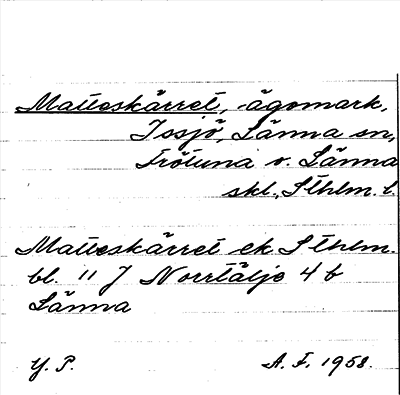 Matteskärret, ägomark,
Issjö, Länna sn,
Frötuna o. Länna
skl., Sthlm. l.
Matteskärret ek. Sthlm.
bl. 11 J Norrtälje 4 b
Länna
Y. P. A. F. 1958.